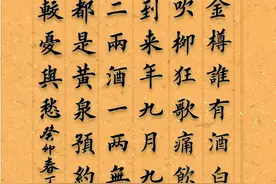 金樽誰有酒白
吹柳狂歌痛飲
到來年九月九
二兩酒一兩無
都是黃泉預約
較憂與愁癸卯春